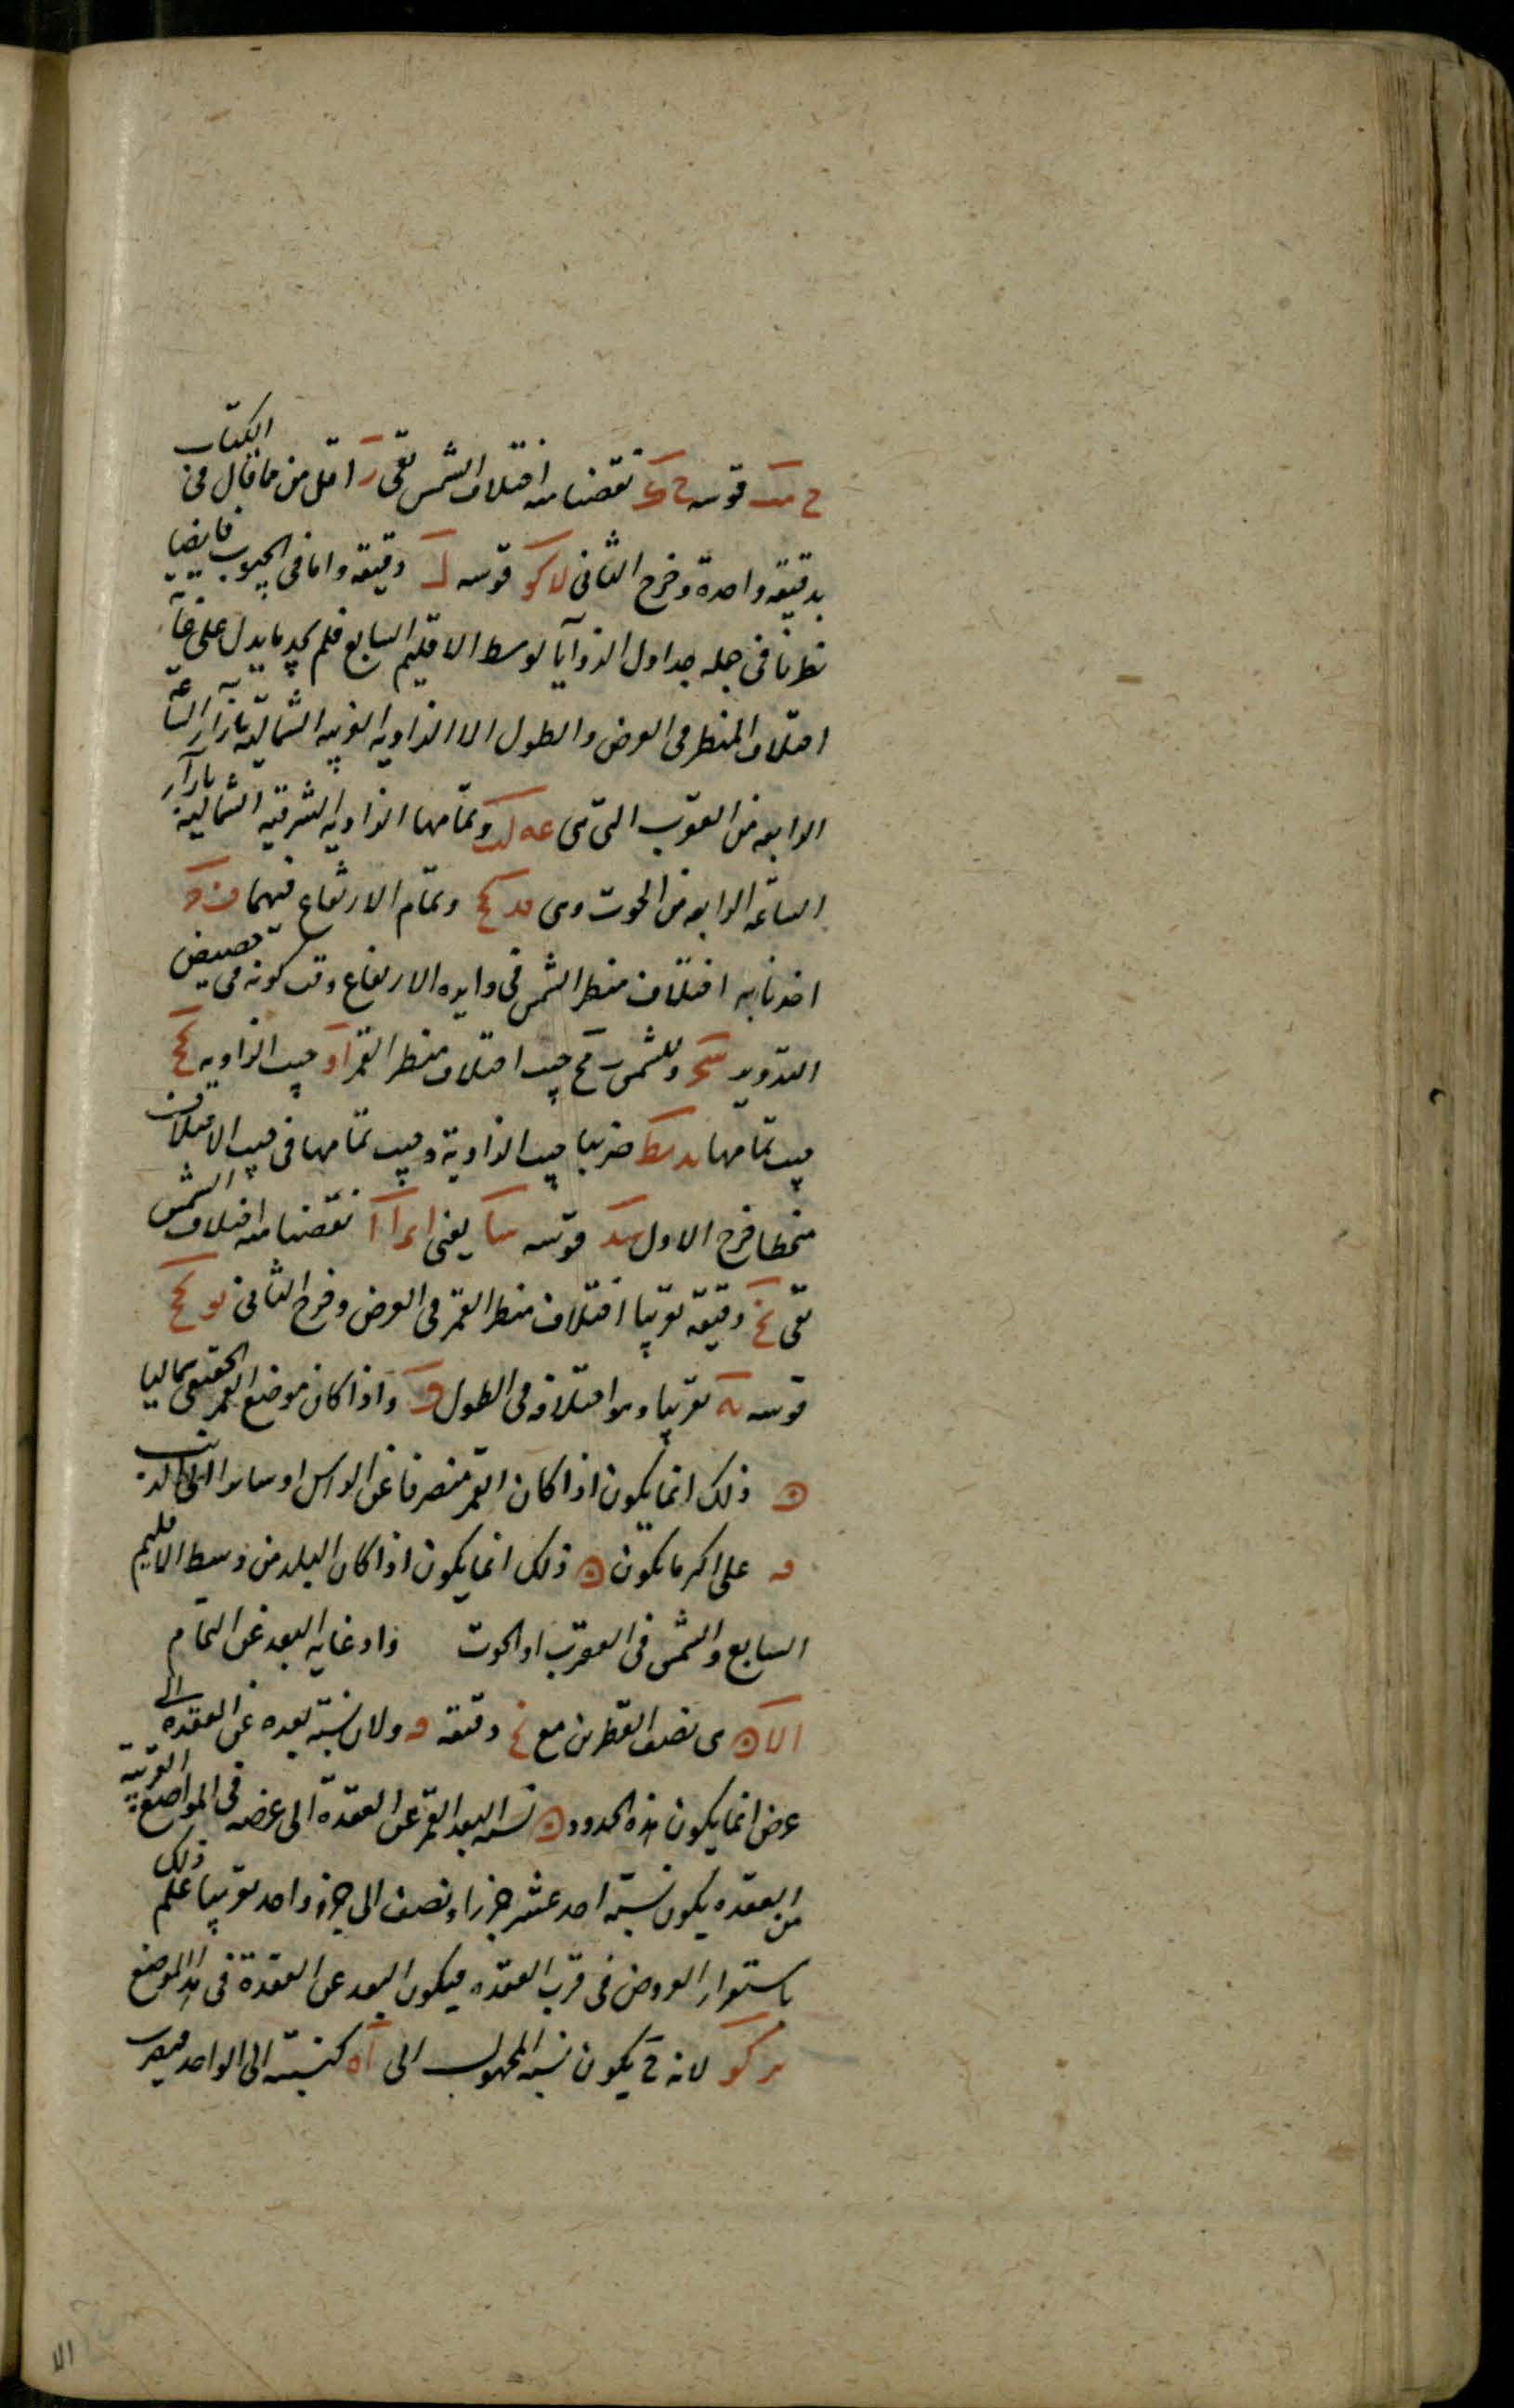 ح مـ قوسه ح ك نقصنا منه اختلاف الشمس بقى ر اقل من ما قال فى الكتاب
بدقيقة واحدة وخرج الثانى لا كو قوسه ل دقيقه واما فى الجنوب فايضا
نظرنا فى جمله جداول الزوايا لوسط الاقليم السابع فلم نجد ما يدل على غاية
اختلاف المنظر فى العرض والطول الا الزاويه الغربيه الشماليه بازاء الساعة
الرابعه من العقرب التى هى عه لب وتمامها الزاويه الشرقيه الشماليه بازاء
الساعه الرابعه من الحوت وهى مد كح وتمام الارتفاع فيهما
اخذنا به اختلاف منظر الشمس فى دايره الارتفاع وقت كونه فى حضيض
التدوير سح وللشمس مح جيب اختلاف منظر القمر او جيب الزاويه كح
جيب تمامها يد نط ضربنا جيب الزاوية وجيب تمامها فى جيب الاختلاف
منحطا فخرج الاول سد قوسه سا يعنى نقصنا منه اختلاف الشمس
بقى نح دقيقه تقريبا اختلاف منظر القمر فى العرض وخرج الثانى يو كح
قوسه يه تقريبا وهو اختلافه فى الطول و واذا كان موضع القمر الحقيقى شماليا
ه ذلك انما يكون اذا كان القمر منصرفا عن الراس او سايرا الى الذنب
و على اكثر ما يكون ه ذلك انما يكون اذا كان البلد من وسط الاقليم
السابع والشمس فى العقرب او الحوت واد غايه البعد عن التمام
الا ه هى نصف القطرين مع نح دقيقه و ولان نسبة بعده عن العقده الى
عرض انما يكون هذه الحدود ه نسبه البعد القمر عن العقدة الى عرضه فى المواضع القريبة
من العقده يكون نسبة احد عشر جزءا ونصف الى جزء واحد تقريبا علم ذلك
باستقراء العروض فى قرب العقده فيكون البعد عن العقدة فى هذا الموضع
ىر كو لانه ح يكون نسبه المجهول الى اه كنسبته الى الواحد فيضرب